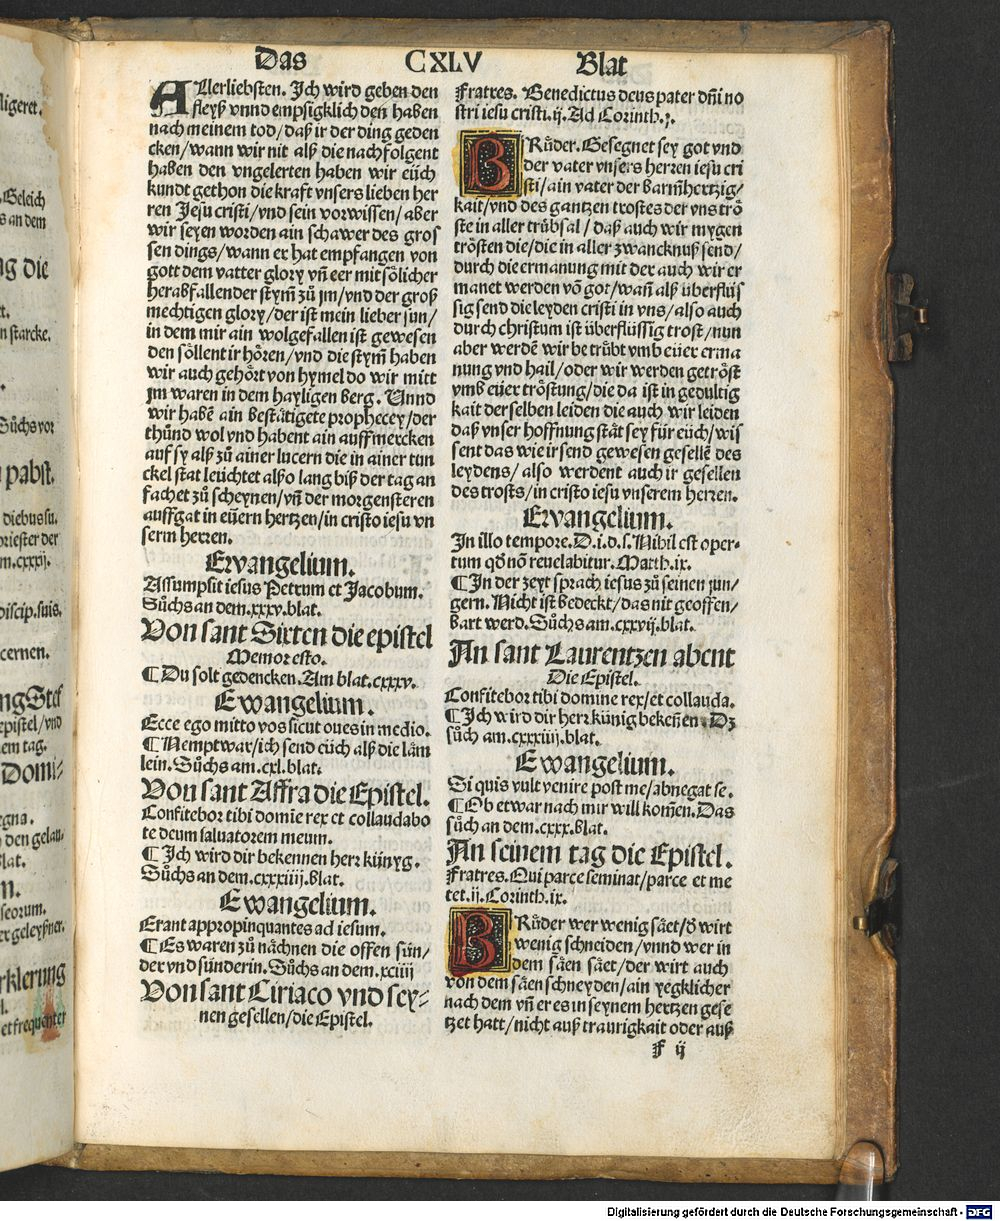 Das CXLV Blat
ALlerliebsten. Jch wird geben den
fleyß vnnd empsigklich den haben
nach meinem tod/daß ir der ding geden
cken/wann wir nit alß die nachfolgent
haben den vngelerten haben wir eüch
kundt gethon die kraft vnsers lieben her
ren Jesu cristi/vnd sein vorwissen/aber
wir seyen worden ain schawer des gros
sen dings/wann er hat empfangen von
gott dem vatter glory vñ eer mit sölicher
herabfallender stym̃ zů jm/vnd der groß
mechtigen glory/der ist mein lieber sun/
in dem mir ain wolgefallen ist gewesen
den söllent ir hören/vnd die stym̃ haben
wir auch gehört von hymel do wir mitt
jm waren in dem hayligen berg. Vnnd
wir habẽ ain bestätigete prophecey/der
thůnd wol vnd habent ain auffmercken
auf sy alß zů ainer lucern die in ainer tun
ckel stat leüchtet also lang biß der tag an
fachet zů scheynen/vñ der morgensteren
auffgat in eüern hertzen/in cristo iesu vn
serm herren.
Ewangelium.
Assumpsit iesus Petrum et Jacobum.
Sůchs an dem.xxxv.blat.
Von sant Sixten die epistel
Memor esto.
¶ Du solt gedencken. Am blat.cxxxv.
Ewangelium.
Ecce ego mitto vos sicut oues in medio.
¶ Nempt war/ich send eüch alß die läm
lein. Sůchs am.cxl.blat.
Von sant Affra die Epistel.
Confitebor tibi domie rex et collaudabo
te deum saluatorem meum.
¶ Jch wird dir bekennen herr künyg.
Sůchs an dem.cxxxiiij.blat.
Ewangelium.
Erant appropinquantes ad iesum.
¶ Es waren zů nächnen die offen sün/
der vnd sünderin. Sůchs an dem.xciiij
Von sant Ciriaco vnd sey-
nen gesellen/die Epistel.
Fratres. Benedictus deus pater dñi no
stri iesu cristi.ij. Ad Corinth.j.
BRůder. Gesegnet sey got vnd
der vater vnsers herren iesu cri
sti/ain vater der barm̃hertzig/
kait/vnd des gantzen trostes der vns trö
ste in aller trübsal/daß auch wir mygen
trösten die/die in aller zwancknuß send/
durch die ermanung mit der auch wir er
manet werden võ got/wañ alß überflüs
sig send die leyden cristi in vns/also auch
durch christum ist überflüssig trost/nun
aber werdẽ wir betrübt vmb eüer erma
nung vnd hail/oder wir werden getröst
vmb eüer tröstung/die da ist in gedultig
kait der selben leiden die auch wir leiden
daß vnser hoffnung stät sey für eüch/wis
sent das wie ir send gewesen gesellẽ des
leydens/also werdent auch ir gesellen
des trosts/in cristo iesu vnserem herren.
Ewangelium.
In illo tempore. D.i.d.s. Nihil est oper-
tum qđ nõ reuelabitur. Math.ix.
¶ In der zeyt sprach iesus zů seinen jun/
gern. Nicht ist bedeckt/das nit geoffen/
bart werd. Sůchs am.cxxvij.blat.
An sant Laurentzen abent
Die Epistel.
Confitebor tibi domine rex/et collauda.
¶ Jch wird dir herr künig bekeñen. Dz
sůch am.cxxxiiij.blat.
Ewangelium.
Si quis vult venire post me/abnegat se.
¶ Ob etwar nach mir will kom̃en. Das
sůch an dem.cxxx.blat.
An seinem tag die Epistel.
Fratres. Qui parce seminat/parce et me
tet.ij. Corinth.ix.
BRůder wer wenig säet/đ wirt
wenig schneiden/vnnd wer in
dem säen säet/der wirt auch
von dem säen schneyden/ain yegklicher
nach dem vñ er es in seynem hertzen gese
tzet hatt/nicht auß traurigkait oder auß
F ij
Digitalisierung gefördert durch die Deutsche Forschungsgemeinschaft - DFG